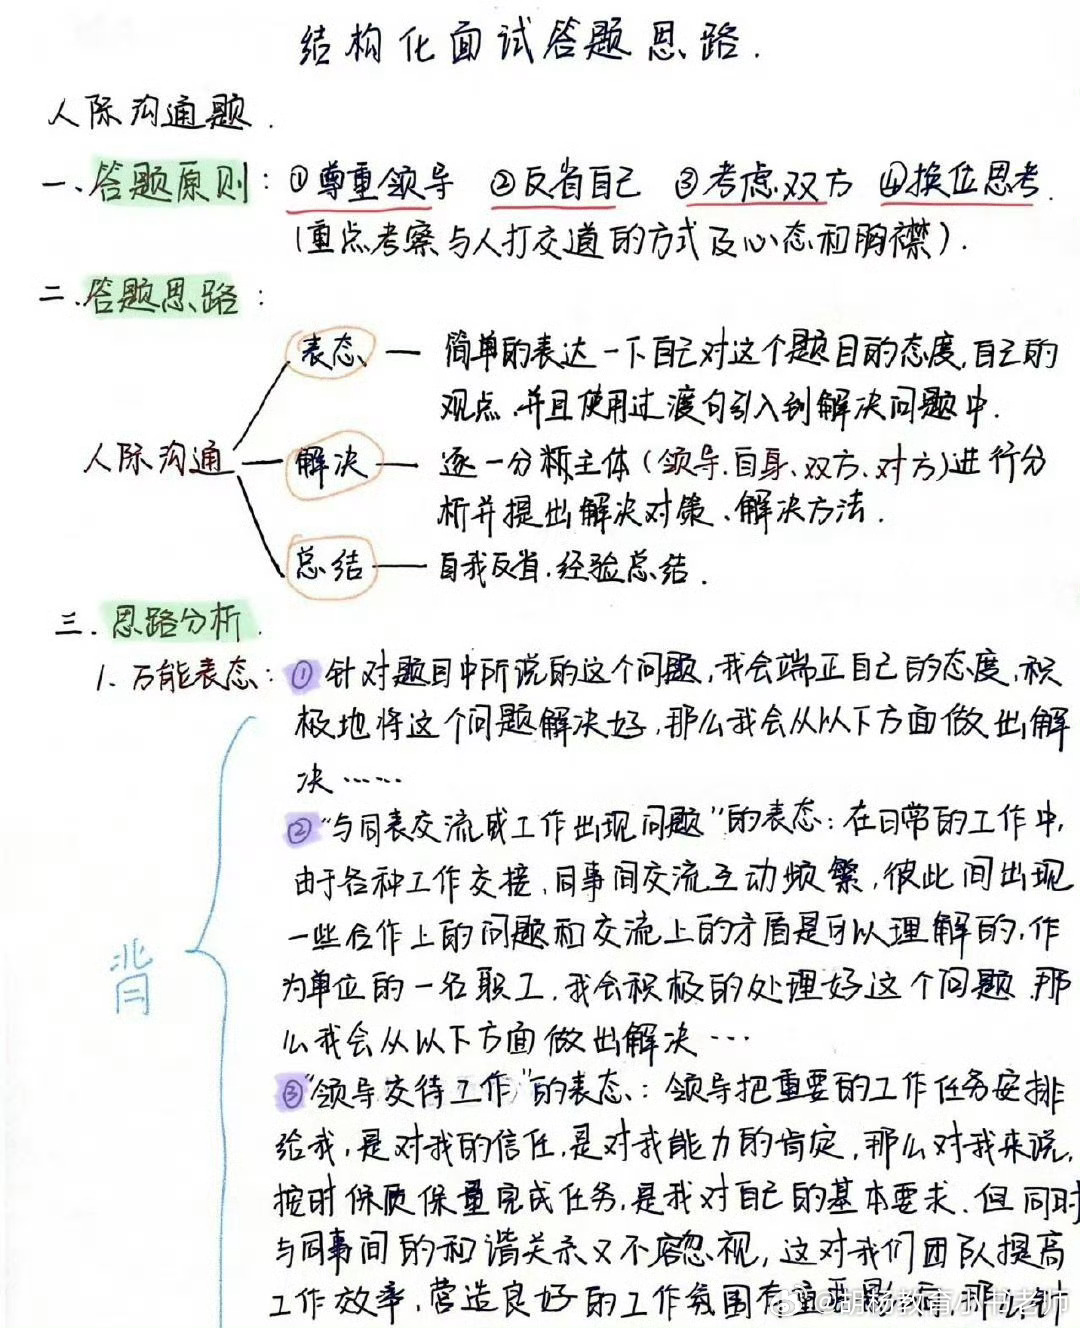 结构化面试答题思路.
人际沟通题.
一、答题原则: ①尊重领导 ②反省自己 ③考虑双方 ④换位思考.
(重点考察与人打交道的方式及心态和胸襟).
二、答题思路:
表态 — 简单的表达一下自己对这个题目的态度,自己的
观点,并且使用过渡句引入到解决问题中.
人际沟通 — 解决 — 逐一分析主体(领导.自身、双方、对方)进行分
析并提出解决对策、解决方法.
总结 — 自我反省.经验总结.
三.思路分析.
1. 万能表态: ①针对题目中所说的这个问题,我会端正自己的态度,积
极地将这个问题解决好,那么我会从以下方面做出解
决……
②"与同事交流或工作出现问题"的表态:在日常的工作中,
由于各种工作交接、同事间交流互动频繁,彼此间出现
一些合作上的问题和交流上的矛盾是可以理解的,作
为单位的一名职工,我会积极的处理好这个问题.那
么我会从以下方面做出解决…
背
③"领导交待工作"的表态:领导把重要的工作任务安排
给我,是对我的信任,是对我能力的肯定,那么对我来说,
按时保质保量完成任务,是我对自己的基本要求.但同时
与同事间的和谐关系又不容忽视,这对我们团队提高
工作效率,营造良好的工作氛围有重要影响,那么针
@胡杨教育小书老师